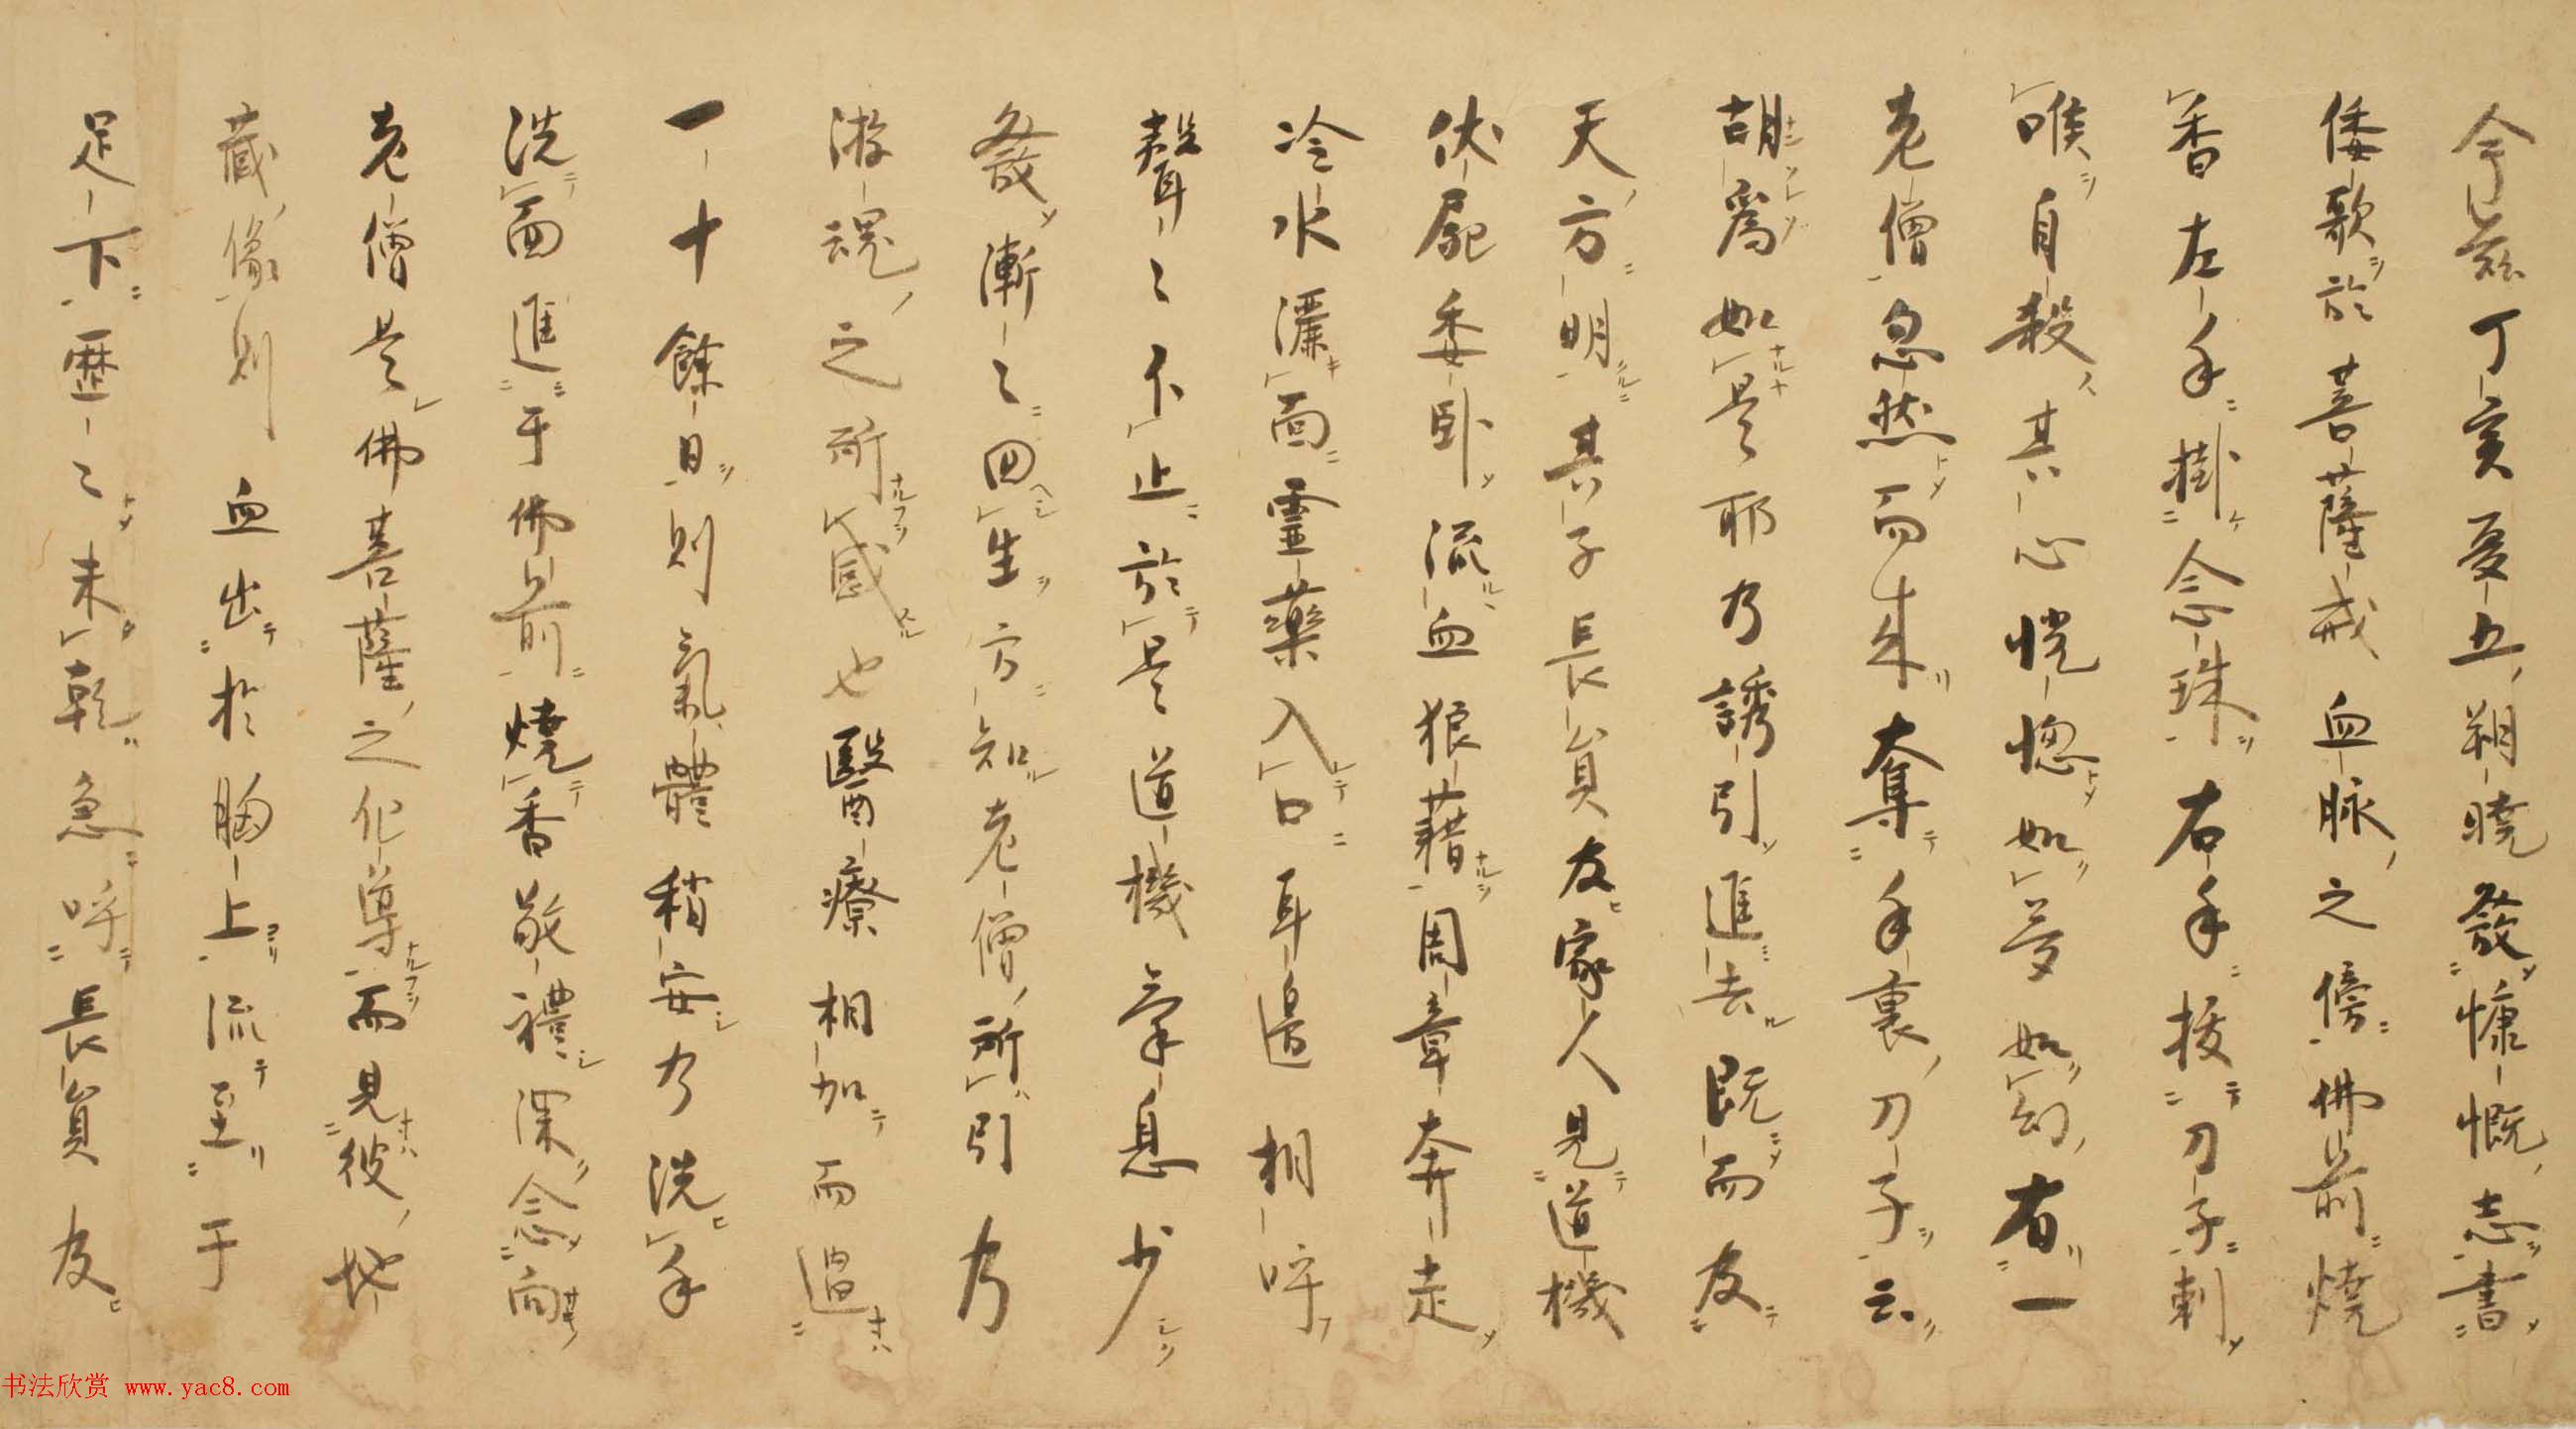 今茲丁亥夏五朔曉發慷慨志書
倭歌於菩薩戒血脉之傍佛前燒
香左手掛念珠右手拔刀子刺
喉自殺其心恍惚如夢如幻有一
老僧忽然而來奪手裏刀子云
胡爲如是耶乃誘引進去既而及
天方明其子長負友家人見道機
伏屍委卧流血狼藉周章奔走
冷水灑面靈藥入口耳邊相呼
聲〻不止於是道機氣息少
發漸〻回生方知老僧所引乃
游魂之所感也醫療相加而
一十餘日則氣體稍安乃洗手
洗面進于佛前燒香敬禮深念向
老僧是佛菩薩之化導而見彼地
藏像則血出於胸上流至于
足下歷〻未乾急呼長負友
书法欣赏 www.yac8.com